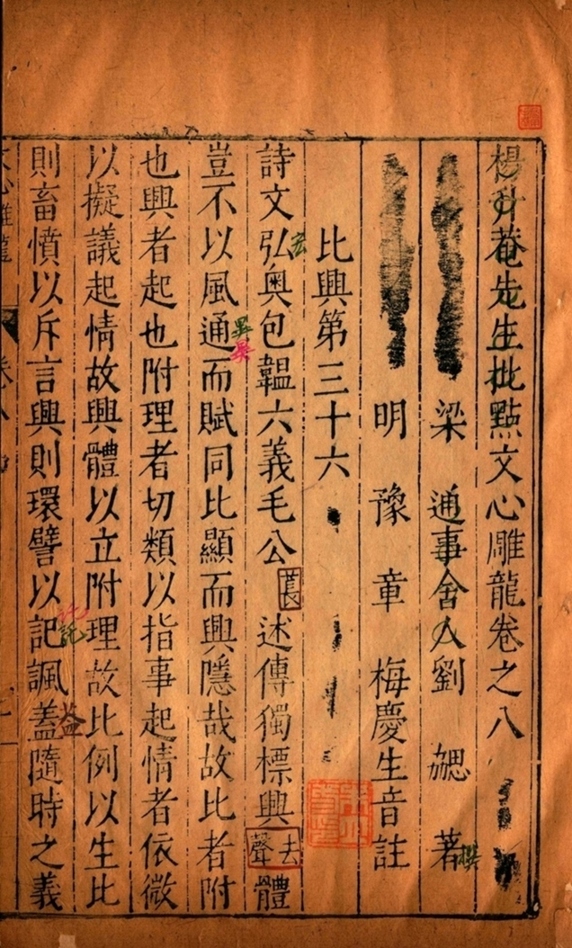 楊升菴先生批點文心雕龍卷之八
梁 通事舍人劉 勰 著
撰
明 豫章 梅慶生音註
比興第三十六
詩文弘奥包韞六義毛公萇述傳獨標興去聲體
宏
豈不以風通而賦同比顯而興隱哉故比者附
異異
也興者起也附理者切類以指事起情者依微
以擬議起情故興體以立附理故比例以生比
則畜憤以斥言興則環譬以記諷蓋隨時之義
託託
益
文心雕龍 卷八